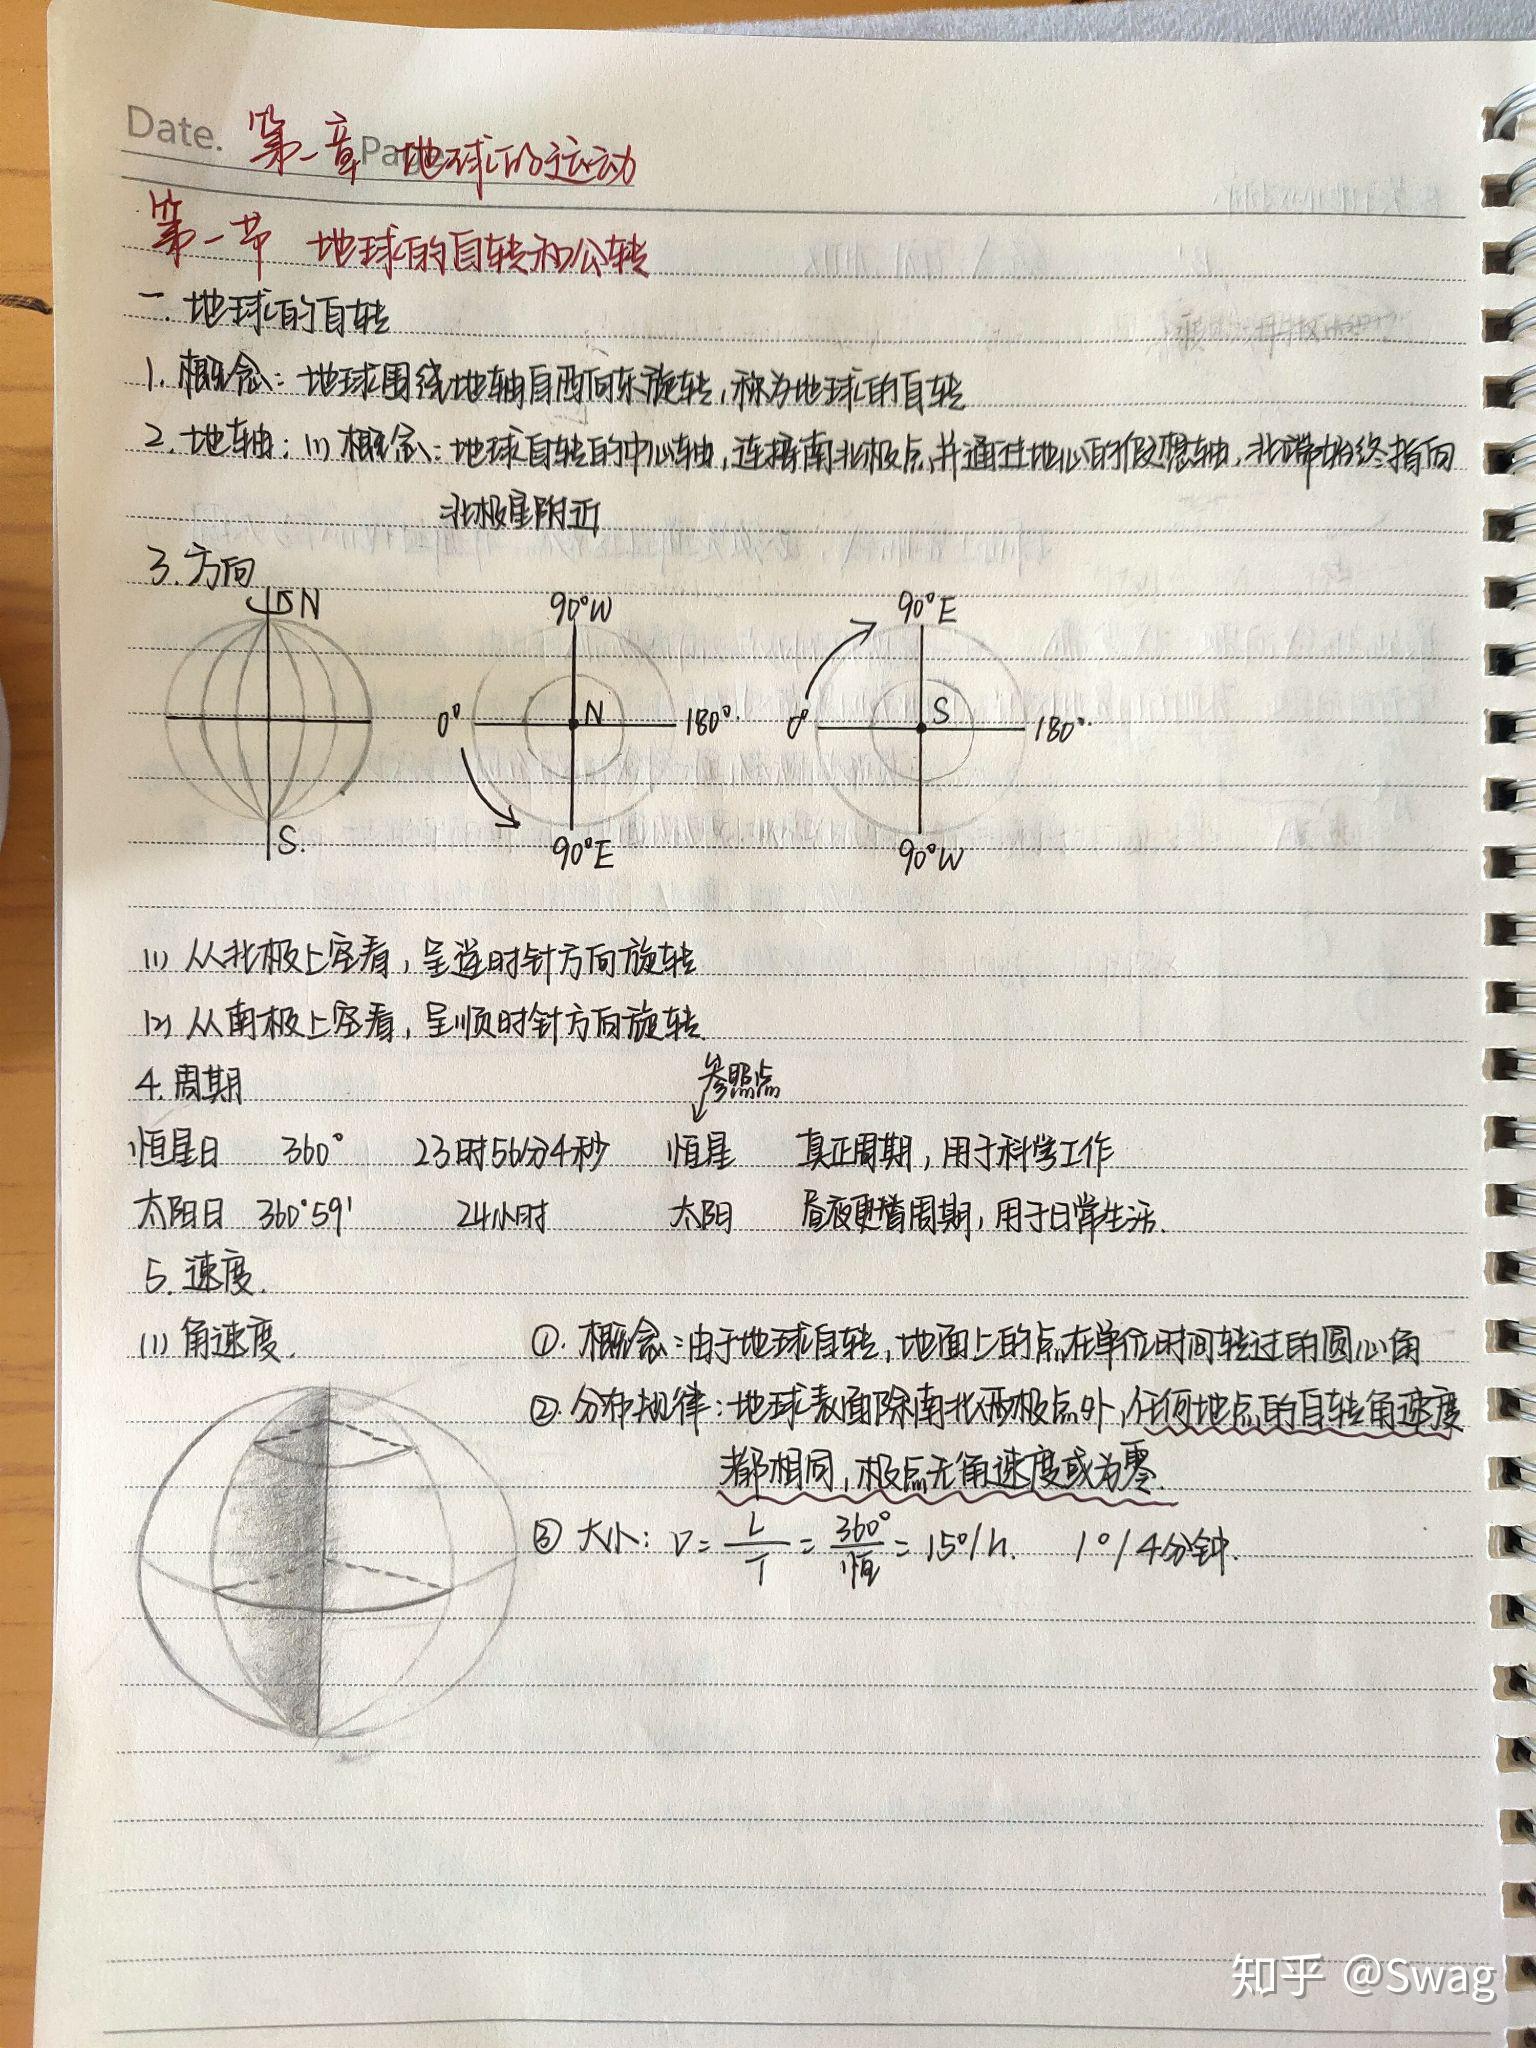 Date.
Page
第一章 地球的运动
第一节 地球的自转和公转
一.地球的自转
1.概念:地球围绕地轴自西向东旋转,称为地球的自转
2.地轴:(1)概念:地球自转的中心轴,连接南北极点,并通过地心的假想轴,北端始终指向
北极星附近
3.方向
N
S.
90°W
0° N 180°.
90°E
90°E
0° S 180°.
90°W
(1) 从北极上空看,呈逆时针方向旋转
(2) 从南极上空看,呈顺时针方向旋转.
4.周期 参照点
恒星日 360° 23时56分4秒 恒星 真正周期,用于科学工作
太阳日 360°59' 24小时 太阳 昼夜更替周期,用于日常生活.
5.速度.
(1)角速度. ①.概念:由于地球自转,地面上的点在单位时间转过的圆心角
②.分布规律:地球表面除南北两极点外,任何地点的自转角速度
都相同,极点无角速度或为零.
③ 大小: V= L/T = 360°/恒 = 15°/h. 1°/4分钟.
知乎 @Swag